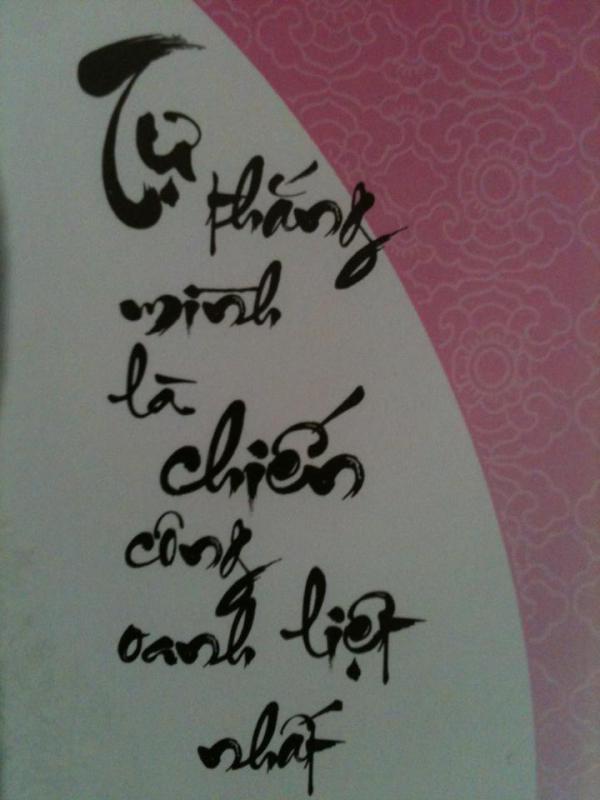 Tự thắng
mình
là
chiến
công
oanh liệt
nhất